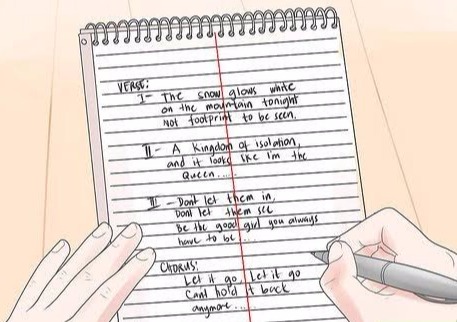 VERSE:
I- The snow glows white
on the mountain tonight
Not footprint to be seen.
II- A Kingdom of isolation,
and it looks like I'm the
Queen.....
III - Dont let them in,
Dont let them see
Be the good girl you always
have to be...
CHORUS:
Let it go, Let it go
Cant hold it back
anymore...